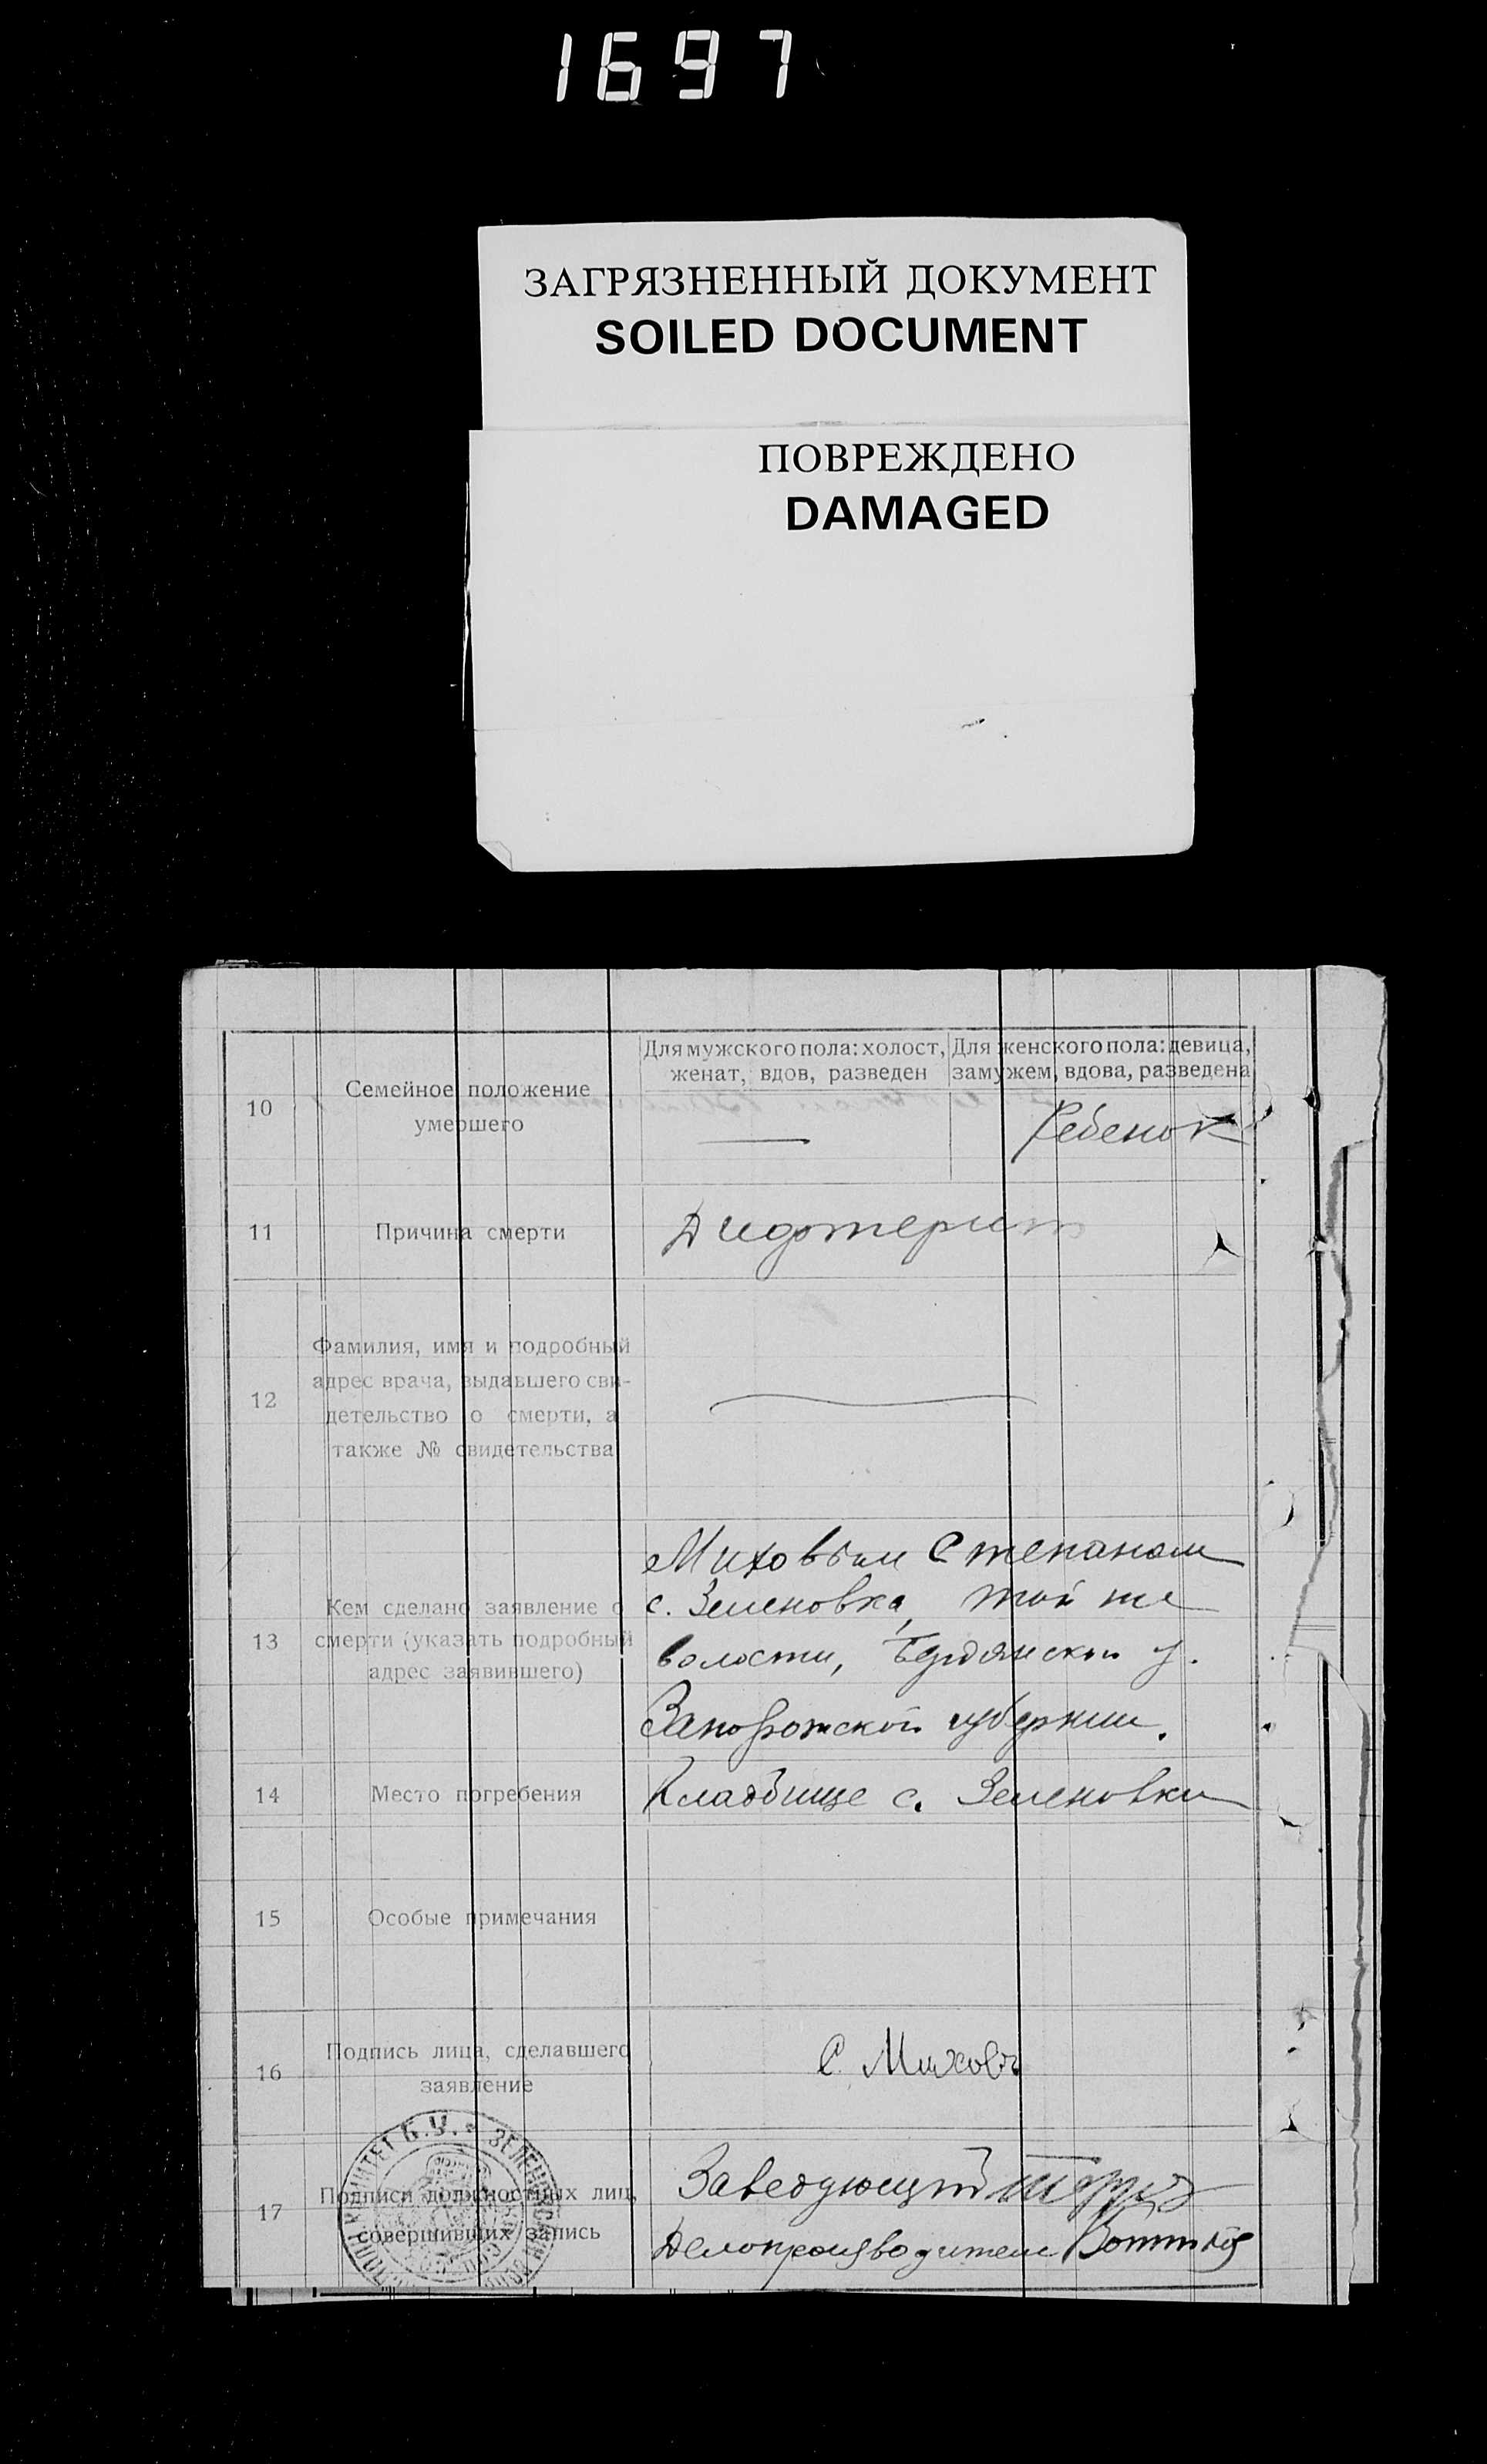 1697
ЗАГРЯЗНЕННЫЙ ДОКУМЕНТ
SOILED DOCUMENT
ПОВРЕЖДЕНО
DAMAGED
10
Семейное положение
умершего
Для мужского пола: холост,
женат, вдов, разведен
Для женского пола: девица,
замужем, вдова, разведена
Ребенок
11
Причина смерти
Дифтерит
12
Фамилия, имя и подробный
адрес врача, выдавшего сви-
детельство о смерти, а
также № свидетельства
13
Кем сделано заявление о
смерти (указать подробный
адрес заявившего)
Миховым Степаном
с. Зеленовка, той же
волости, Бердянской у.
Запорожской губернии.
14
Место погребения
Кладбище с. Зеленовки
15
Особые примечания
16
Подпись лица, сделавшего
заявление
С. Миховъ
17
Подписи должностных лиц,
совершивших запись
Заведующий
Делопроизводитель
Б.У.